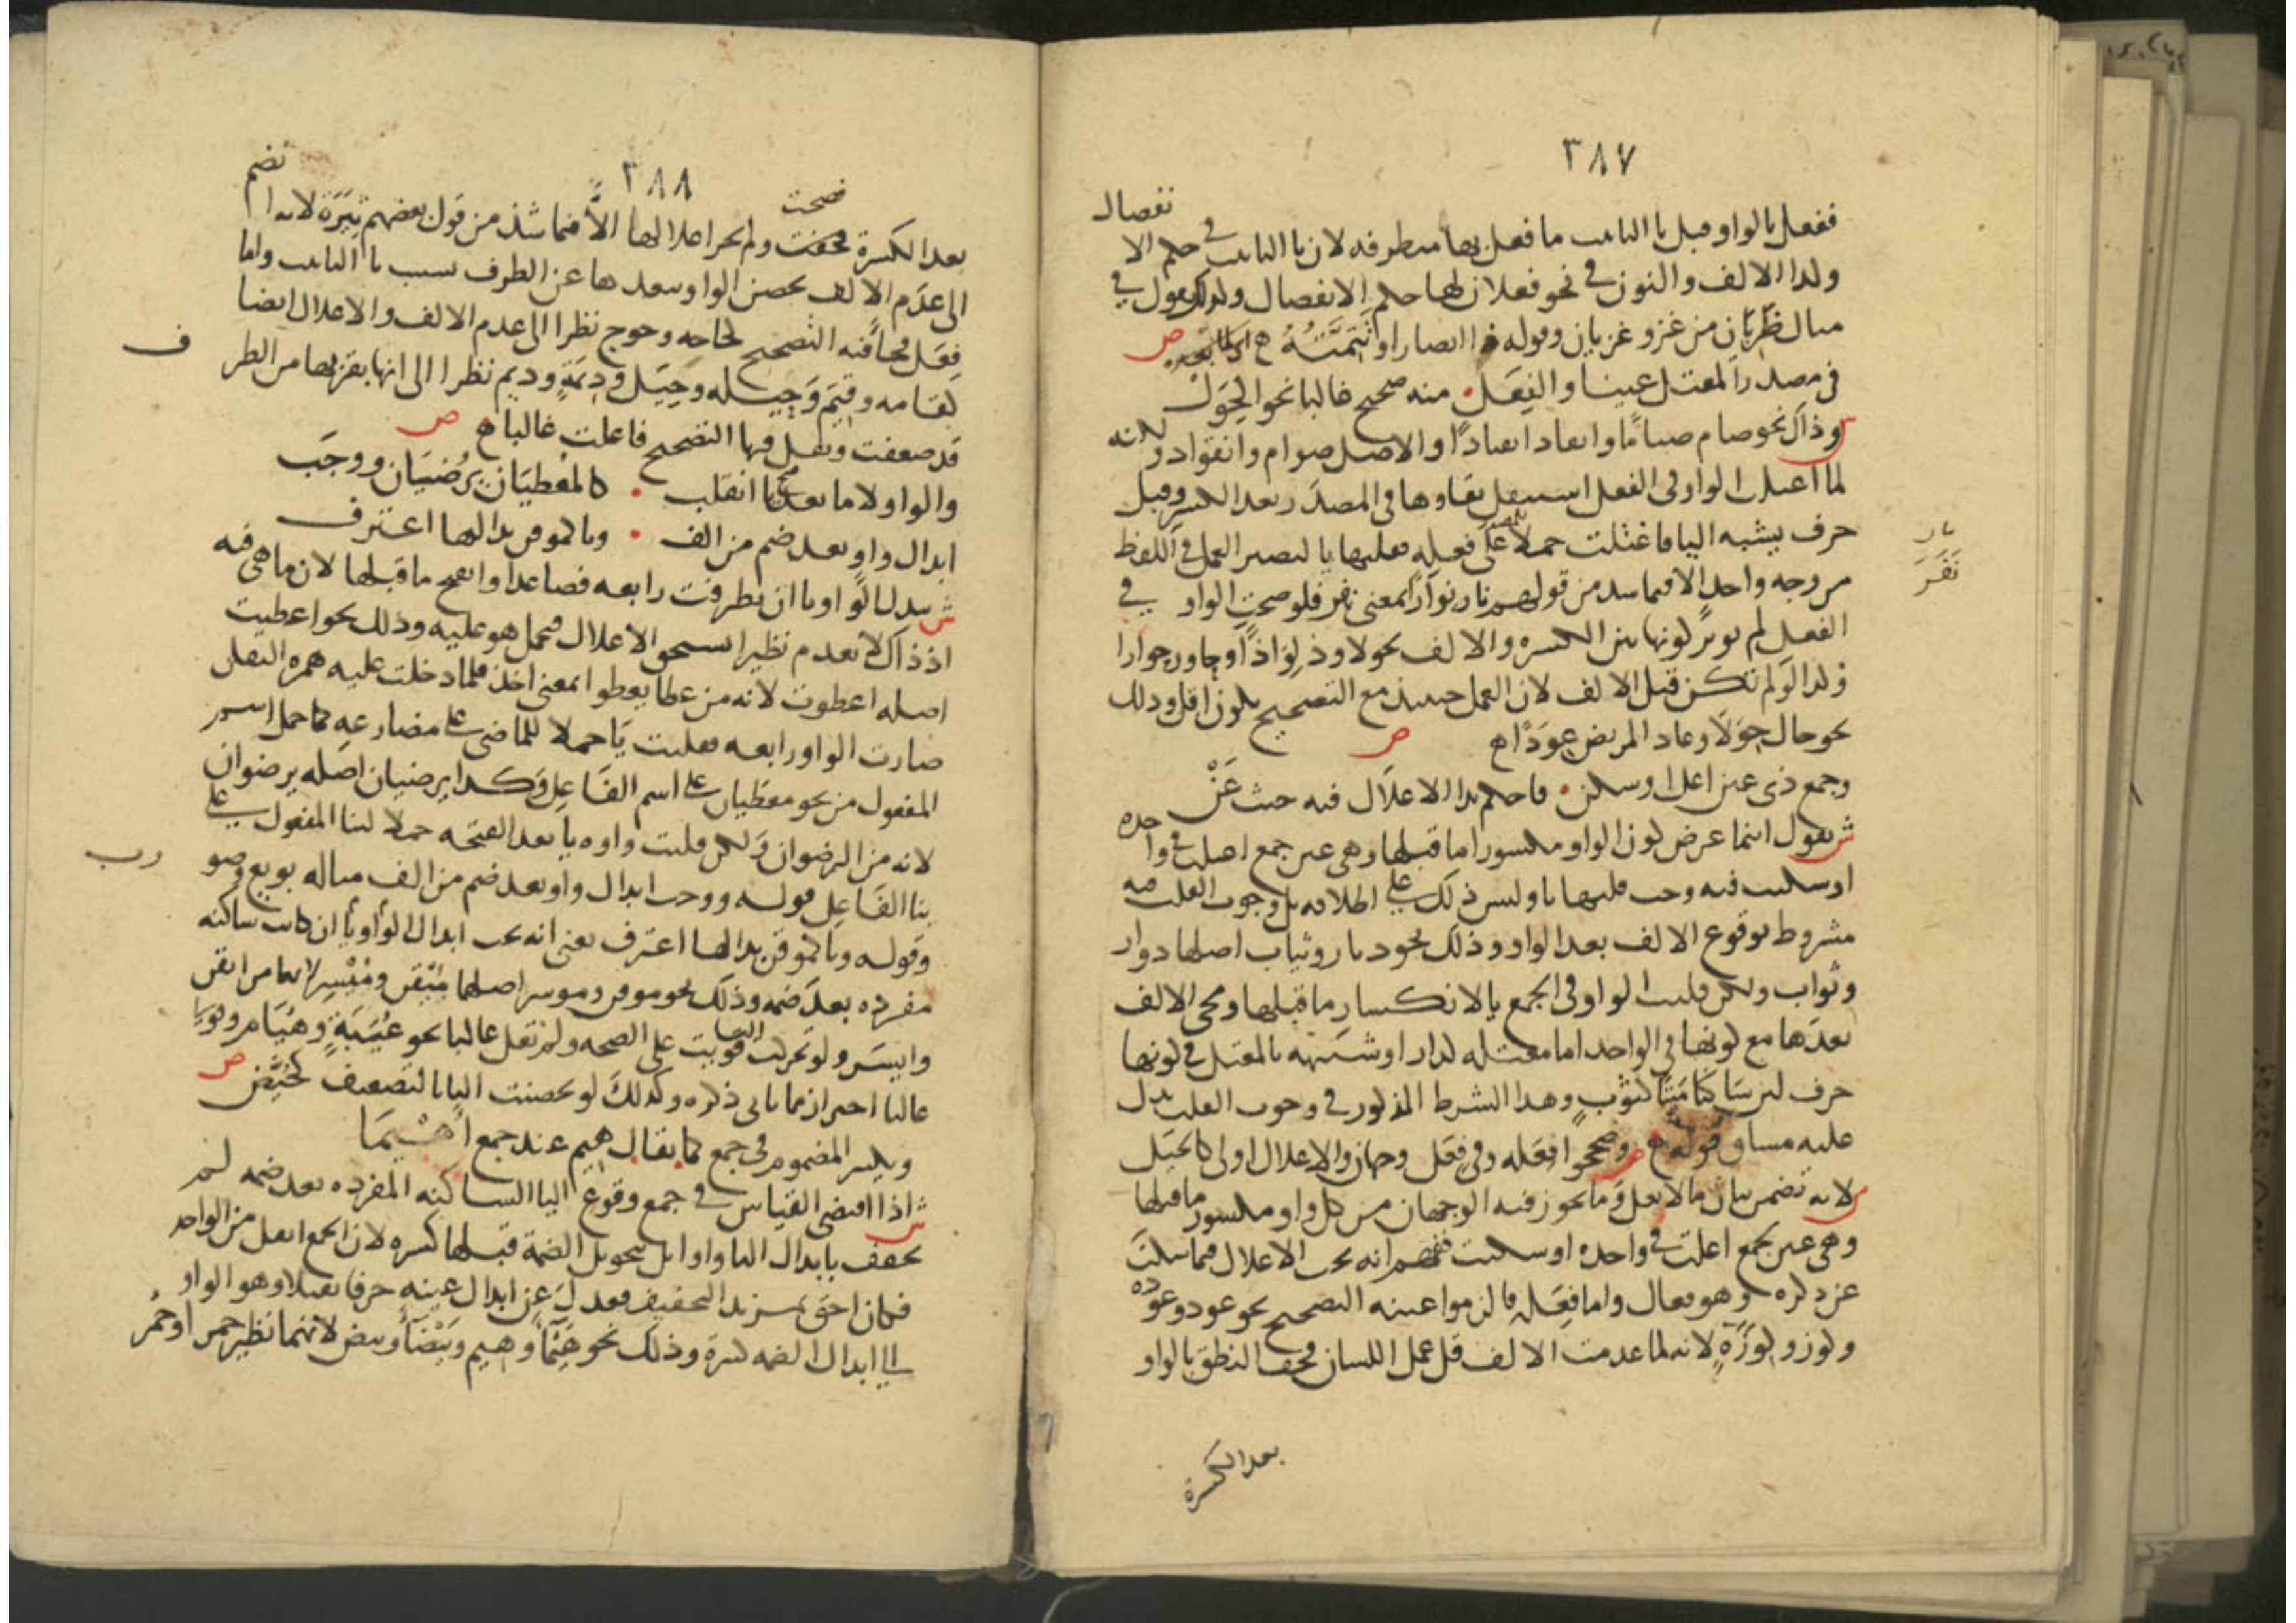 ٣٨٧
ففعل بالواو قبل تاء التانيث ما فعل بها متطرفة لان تاء التانيث في حكم الانفصال
وكذا الالف والنون في نحو فعلان لها حكم الانفصال ولذلك تقول في
مثال ظربان من غزو غزيان وقوله ذا ايضا راوا
في مصدر المعتل عينا والفعل منه صحيح غالبا نحو الحول
وذلك نحو صام صياما وانقاد انقيادا والاصل صوام وانقواد لانه
لما اعلت الواو في الفعل استثقل بقاوها في المصدر بعد الكسر وقبل
حرف يشبه اليا فاعلت حملا للمصدر على فعله فقلبها يا ليصير العمل في اللفظ
من وجه واحد الا فيما شذ من قولهم نار نوارا بمعنى نفر فلو صحت الواو في
الفعل لم يوثر كونها بين الكسره والالف نحو لاوذ لواذا وجاور جوارا
وكذا لو لم تكن قبل الالف لان العمل حينيذ مع التصحيح يكون اقل وذلك
نحو حال حولا وعاد المريض عودا ص
وجمع ذي عين اعل او سكن فاحكم بذا الاعلال فيه حيث عن
ش يقول اينما عرض كون الواو مكسورا ما قبلها وهي عين جمع اعلت في واحده
او سكنت فيه وجب قلبها يا وليس ذلك على اطلاقه بل وجوب القلب فيه
مشروط بوقوع الالف بعد الواو وذلك نحو ديار وثياب اصلها دوار
وثواب ولكن قلبت الواو في الجمع يا لانكسار ما قبلها ومجي الالف
بعدها مع كونها في الواحد اما معتله كدار او شبيهه بالمعتل في كونها
حرف لين ساكنا ميتا كثوب وهذا الشرط المذكور في وجوب القلب يدل
عليه مساق قوله ص وصححوا فعله وفي فعل وجهان والاعلال اولى كالحيل
ش لانه تضمن بيان ما لا يعل وما يجوز فيه الوجهان من كل واو مكسور ما قبلها
وهي عين جمع اعلت في واحده او سكنت ففهم انه يجب الاعلال فيما سكت
عن ذكره وهو فعال واما فعله فالزموا عينه التصحيح نحو عود وعوده
وكوز وكوزة لانه لما عدمت الالف قل عمل اللسان فخف النطق بالواو
بعد الكسرة
نار
نفر
٣٨٨
بعد الكسرة فصحت ولم يجز اعلالها الا فيما شذ من قول بعضهم ثيرة لانه انضم
الى عدم الالف تحصن الواو وبعدها عن الطرف بسبب تا التانيث واما
فعل فجا فيه التصحيح كحاجه وحوج نظرا الى عدم الالف والاعلال ايضا
كقامه وقيم وحيله وحيل وديمة وديم نظرا الى انها بقربها من الطرف
قد ضعفت وثقل فيها التصحيح فاعلت غالبا ص
والواو لاما بعد فتح يا انقلب كالمعطيان يرضيان ووجب
ابدال واو بعد ضم من الف ويا كموقن بذا لها اعترف
ش تبدل الواو يا ان تطرفت رابعه فصاعدا وانفتح ما قبلها لان ما هي فيه
اذ ذاك لا يعدم نظيرا يستحق الاعلال فيحمل هو عليه وذلك نحو اعطيت
اصله اعطوت لانه من عطا يعطوا بمعنى اخذ فلما دخلت عليه همزه النقل
صارت الواو رابعه فقلبت يا حملا للماضي على مضارعه كما حمل اسم
المفعول من نحو معطيان على اسم الفاعل وكذا يرضيان اصله يرضوان
لانه من الرضوان ولكن قلبت واوه يا بعد الفتحه حملا لبنا المفعول على
بنا الفاعل قوله ووجب ابدال واو بعد ضم من الف مثاله بويع وضورب
وقوله ويا كموقن بذا لها اعترف يعني انه يجب ابدال الواو يا ان كانت ساكنه
مفرده بعد ضمه وذلك نحو موقن وموسر اصلهما ميقن وميسر لانهما من ايقن
وايسر ولو تحركت اليا قويت على الصحه ولم تعل غالبا نحو عيبة وهيام وقولنا
غالبا احترازا مما ياتي ذكره وكذلك لو تحصنت اليا بالتضعيف كحيض ص
ويكسر المضموم في جمع كما يقال هيم عند جمع اهيما
ش اذا اقتضى القياس في جمع وقوع اليا الساكنه المفرده بعد ضمه لم
تخفف بابدال اليا واوا بل بتحويل الضمة قبلها كسره لان الجمع اثقل من الواحد
فكان احق بمزيد التخفيف فعدل عن ابدال عينه حرفا ثقيلا وهو الواو
الى ابدال الضمه كسرة وذلك نحو هيما وهيم وبيضا وبيض لانهما نظير حمر او حمر